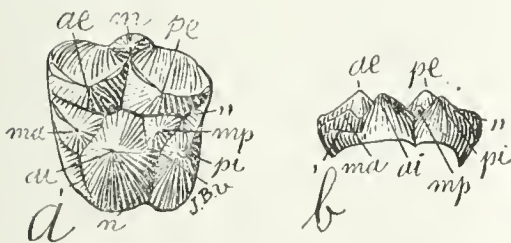 ae m pe
ma " mp
ai pi
n J.B.U.
a
ae pe
"
' ma ai mp pi
b